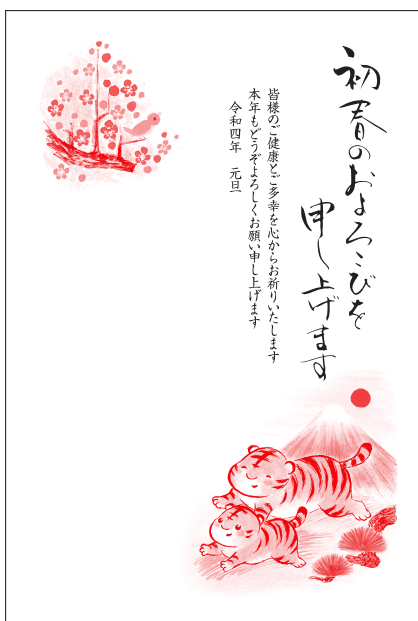 初春のおよろこびを
申し上げます
皆様のご健康とご多幸を心からお祈りいたします
本年もどうぞよろしくお願い申し上げます
令和四年　元旦